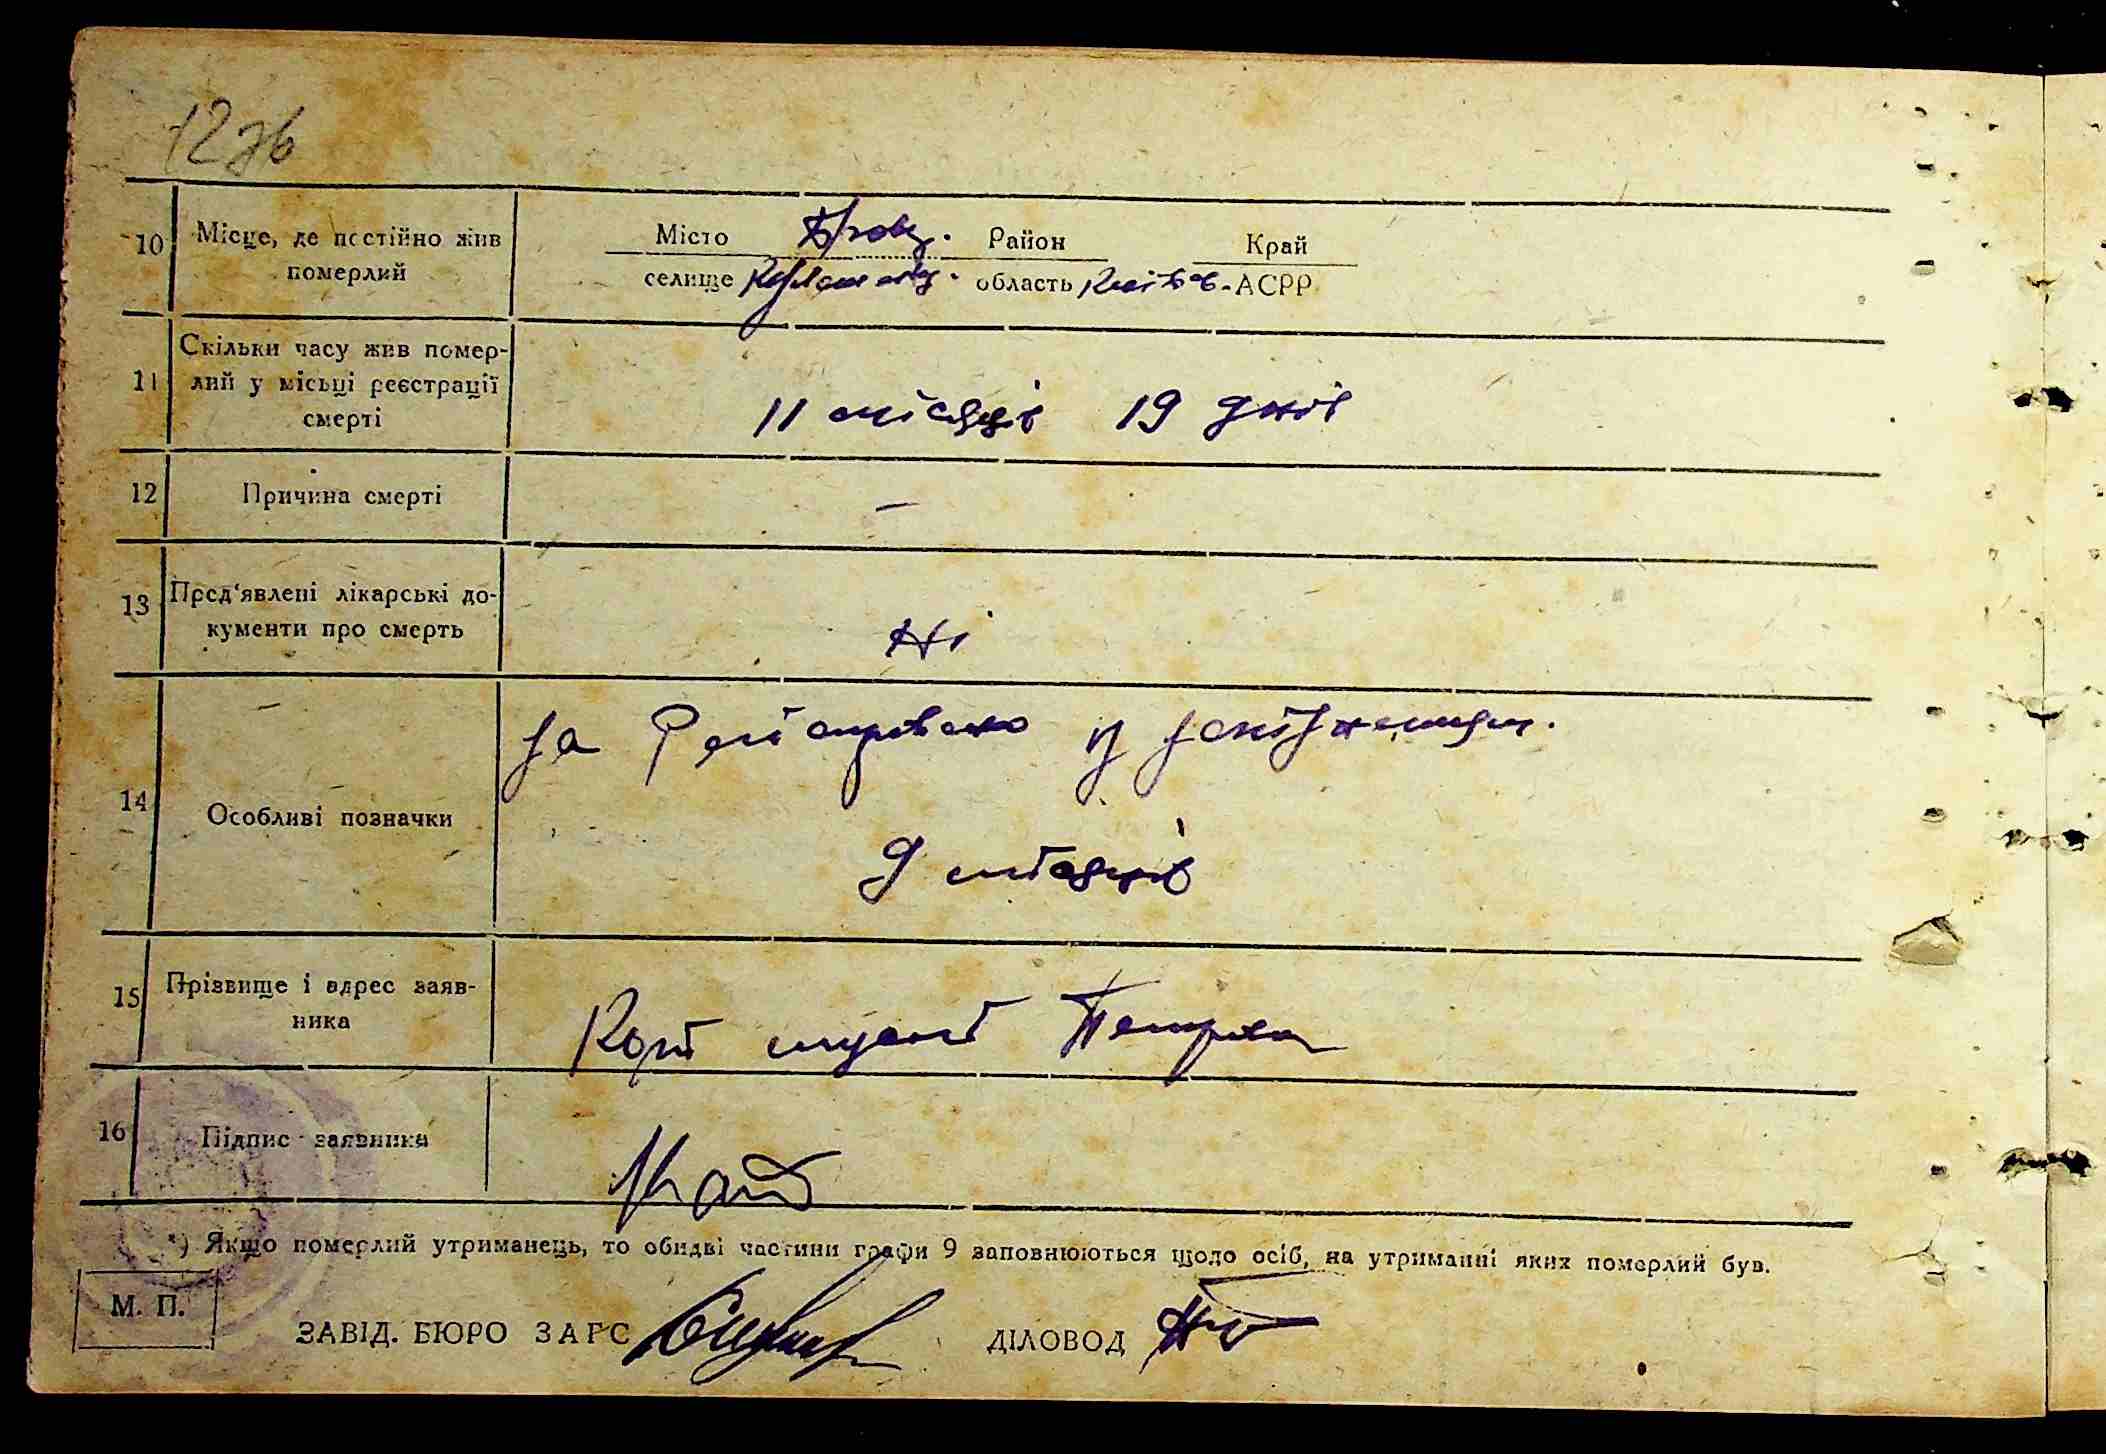 12зв
10 Місце, де постійно жив померлий
Місто Бровар. Район Край
селище область Київсь. АСРР
11 Скільки часу жив помер-
лий у місьці реєстрації
смерті
11 місяців 19 днів
12 Причина смерті
–
13 Пред'явлені лікарські до-
кументи про смерть
Ні
14 Особливі позначки
за Реєстровано із запізненням.
9 місяців
15 Прізвище і адрес заяв-
ника
Петрова
16 Підпис заявника
*) Якщо померлий утриманець, то обидві частини графи 9 заповнюються щодо осіб, на утриманні яких померлий був.
М. П.
ЗАВІД. БЮРО ЗАГС ДІЛОВОД